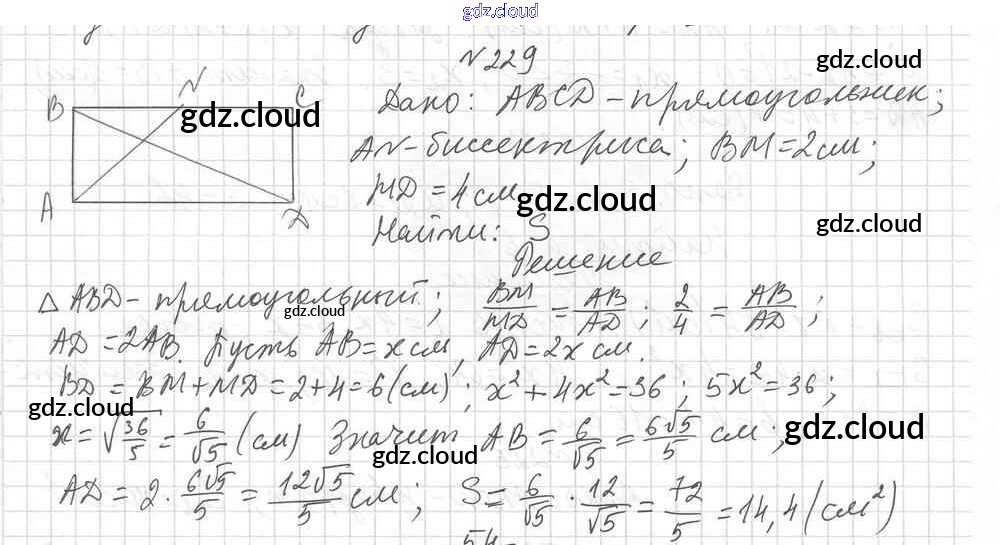 gdz.cloud
N 229
gdz.cloud
B N C
gdz.cloud
A D
Дано: ABCD - прямоугольник;
AN - биссектриса; BM = 2 см;
MD = 4 см
gdz.cloud
gdz.cloud
Найти: S
Решение
△ ABD - прямоугольный; BM/MD = AB/AD; 2/4 = AB/AD;
gdz.cloud
AD = 2AB. Пусть AB = x см, AD = 2x см.
BD = BM + MD = 2 + 4 = 6 (см); x² + 4x² = 36; 5x² = 36;
gdz.cloud
x = √36/5 = 6/√5 (см) Значит, AB = 6/√5 = 6√5/5 см;
gdz.cloud
gdz.cloud
AD = 2 · 6√5/5 = 12√5/5 см; S = 6/√5 · 12/√5 = 72/5 = 14,4 (см²)